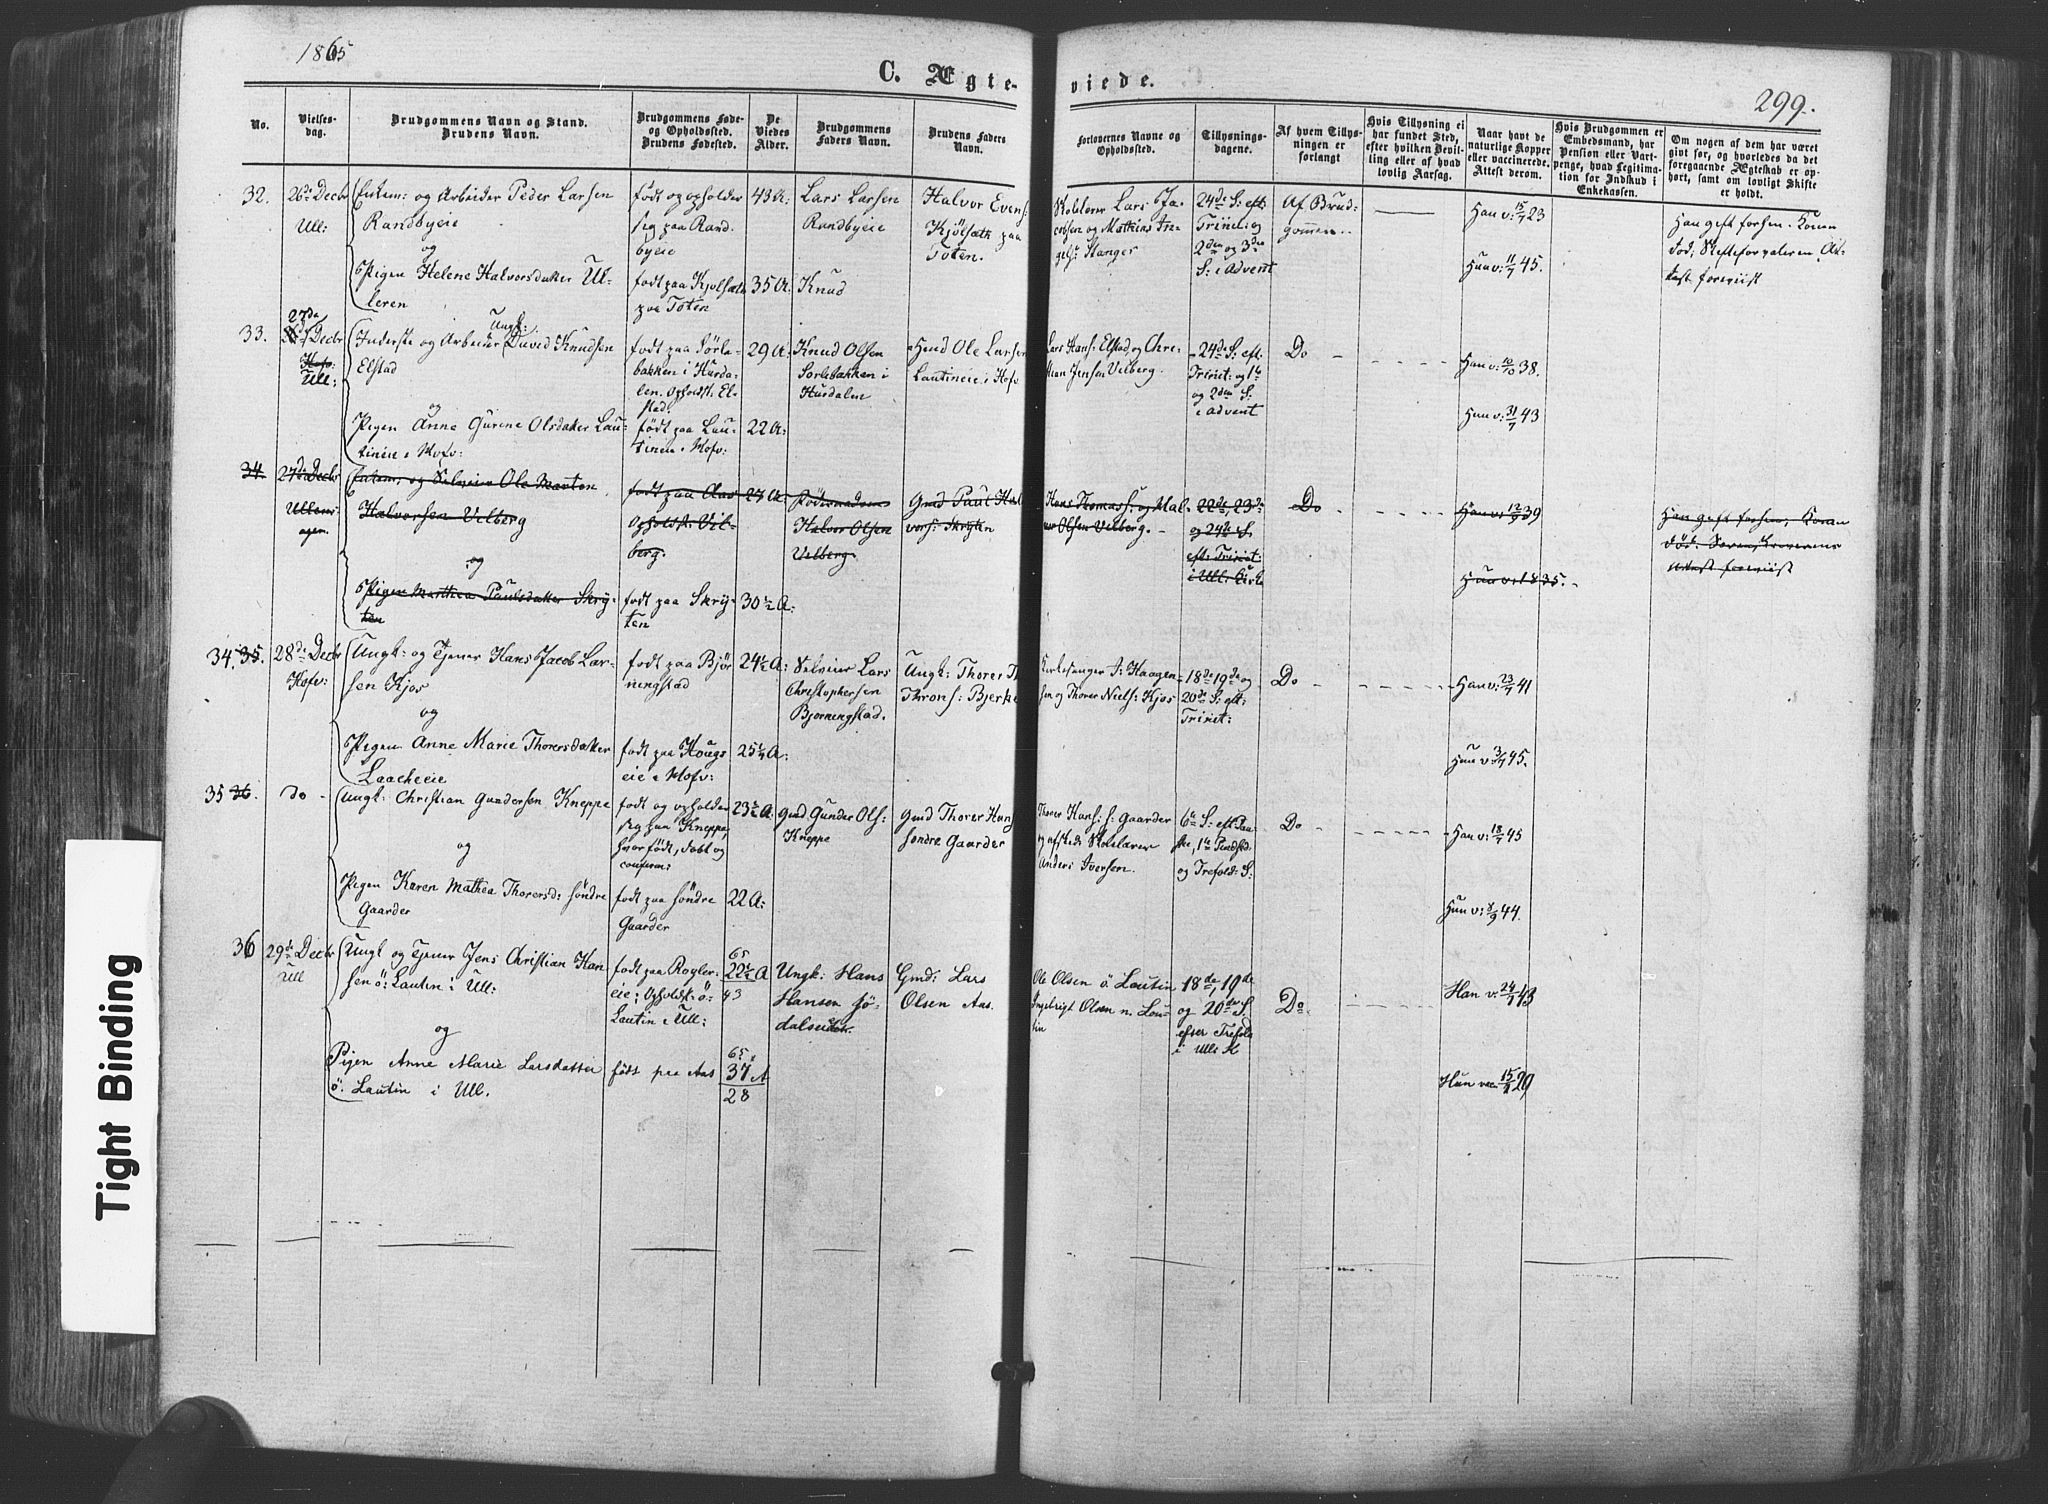 1865
C. Ægte-
viede.
299.
No.
Vielses-
dag.
Brudgommens Navn og Stand.
Brudens Navn.
Brudgommens Føde-
og Opholdssted.
Brudens Fødested.
De
Viedes
Alder.
Brudgommens
Faders Navn.
Brudens Faders
Navn.
Forlovernes Navne og
Opholdssted.
Tillysnings-
dagene.
Af hvem Tillys-
ningen er
forlangt
Hvis Tillysning ei
har fundet Sted,
efter hvilken Bevil-
ling eller af hvad
lovlig Aarsag.
Naar havt de
naturlige Kopper
eller vaccinerede.
Attest derom.
Hvis Brudgommen er
Embedsmand, har
Pension eller Vart-
penge, hvad Legitima-
tion for Indskud i
Enkekassen.
Om nogen af dem har været
givt før, og hvorledes da det
foregaaende Ægteskab er op-
hørt, samt om lovligt Skifte
er holdt.
32.
26de Decbr
Ull:
Enkem: og Arbeider Peder Larsen
Randbyeie
og
Pigen Helene Halvorsdatter Ul-
leren
født og opholder
sig paa Rand-
byeie
født paa Kjølsæth
paa Toten
43 A:
35 A:
Lars Larsen
Randbyeie
Knud
Halvor Evens:
Kjølsæth paa
Toten.
Skolelærer Lars Ja-
cobsen og Mathias In-
gels: Hanger
24de S: eft:
Trini: og
2den og 3die
S: i Advent
Af Brud-
gommen.
Han v: 15/7 23
Hun v: 11/7 45.
Han gift forhen. Konen
død,
Attest foreviist
33.
27da
Decbr
Hofv:
Ull:
Ungk:
Inderste og Arbeider David Knudsen
Elstad
og
Pigen Anne Gurine Olsdatter Lau-
tineie i Hofv:
født paa Sørle-
bakken i Hurda-
len. Opholdst: El-
stad.
født paa Lau-
tineie i Hofv:
29 A:
22 A:
Knud Olsen
Sørlebakken i
Hurdalen
Ole Larsen
Lautineie i Hofv
Lars Hans: Elstad og Chri-
stian Jensen Velberg.
24de S: eft:
Trinit: og 1te
og 2den S:
i Advent
Do
Han v: 10/10 38.
Hun v: 31/7 43
34
27de Decbr
Ullens-
agen.
Enkem: og Selveier Ole Marten
Halvorsen Velberg
og
Pigen Marthea Paulsdatter Skry-
ten
født paa Aas
opholdst: Vel-
berg.
født paa Skry-
ten
27 A:
30 1/2 A:
Halvor Olsen
Velberg.
Gmd Paul Hal-
vors: Skryten
Hans Thomas: og Mal-
Olsen Velberg.
22de, 23de
og 24de S.
eft: Trinit:
i Ull: Kirke
Do
Han v: 12/9 39
Hun v: 1835.
Han gift forhen, Konen
død:
Attest foreviist
34, 35.
28de Decbr
Hofv:
Ungk: og Tjener Hans Jacob Lar-
sen Kjos
og
Pigen Anne Marie Thorersdatter
Laacheeie
født paa Bjør-
ningstad
født paa Hougs-
eie i Hofv:
24 1/2 A:
25 1/2 A:
Selveier Lars
Christophersen
Bjørningstad.
Ungk: Thorer
Throns: Bjerke
Kirkesanger J: Haagen-
sen og Thorer Niels: Kjos
18de 19de og
20de S: eft:
Trinit:
Do
Han v: 23/7 41
Hun v: 3/7 45.
35 36.
do
Ungk: Christian Gundersen Kneppe
og
Pigen Karen Mathea Thorersd: søndre
Gaarder
født og opholder
sig paa Kneppe,
hvor født, døbt og
confirm:
født paa søndre
Gaarder
23 1/2 A:
22 A:
Gmd Gunder Ols:
Kneppe
Gmd Thorer Hans
søndre Gaarder
Thorer Hans: s: Gaarder
og afskede Skolelærer
Anders Iversen.
6te S: eft Paa-
ske, 1te Pindsed
og Trefold: S:
Do
Han v: 18/7 45
Hun v: 8/9 44.
36
29de Decbr
Ull
Ungk og Tjener Jens Christian Han
sen ö: Lautin i Ull:
og
Pigen Anne Marie Larsdatter
ö: Lautin i Ull.
født paa Royler-
eie; Opholdst: ö:
Lautin i Ull:
født paa Aas
65
22 1/2 A
43
65
37 A
28
Ungk: Hans
Hansen Sø-
dalseie
Gmd: Lars
Olsen Aas.
Ole Olsen ö Lautin
Ingebrigt Olsen n. Lau-
tin
18de, 19de
og 20de S.
efter Trefold
i Ulls K
Do
Han v: 24/7 43
Hun vac 15/ 29
Tight Binding